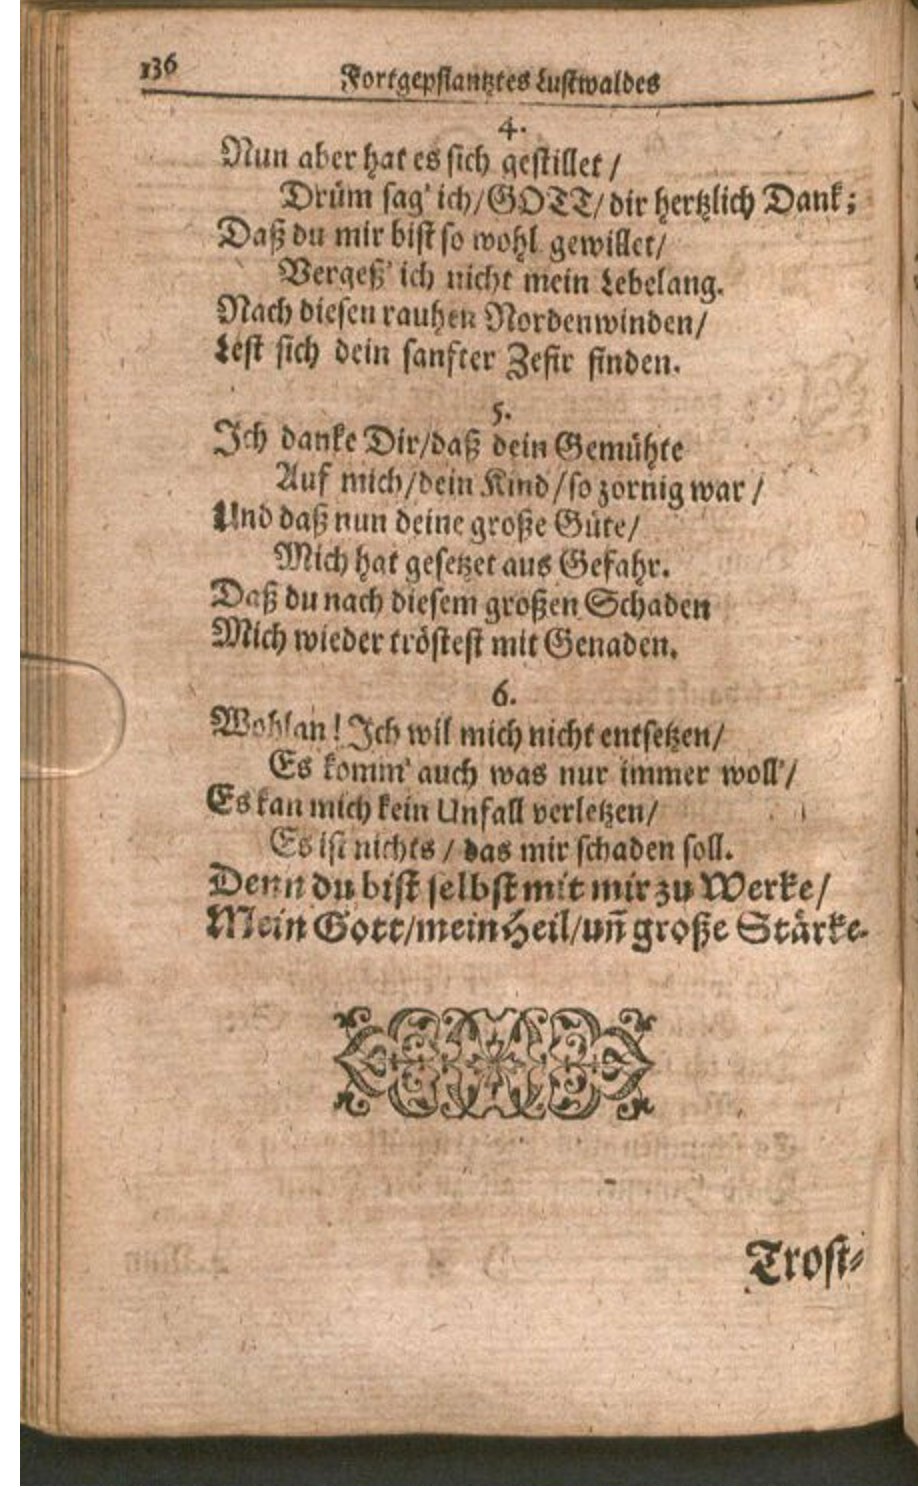 136
Fortgepflantztes Lustwaldes
4.
Nun aber hat es sich gestillet /
Drüm sag' ich / GOTT / dir hertzlich Dank;
Daß du mir bist so wohl gewillet /
Vergeß' ich nicht mein Lebelang.
Nach diesen rauhen Nordenwinden /
Lest sich dein sanfter Zefir finden.
5.
Ich danke Dir / daß dein Gemühte
Auf mich / dein Kind / so zornig war /
Und daß nun deine große Güte /
Mich hat gesetzet aus Gefahr.
Daß du nach diesem großen Schaden
Mich wieder tröstest mit Genaden.
6.
Wohlan! Ich wil mich nicht entsetzen /
Es komm' auch was nur immer woll' /
Es kan mich kein Unfall verletzen /
Es ist nichts / das mir schaden soll.
Denn du bist selbst mit mir zu Werke /
Mein Gott / mein Heil / uñ große Stärke.
Trost-